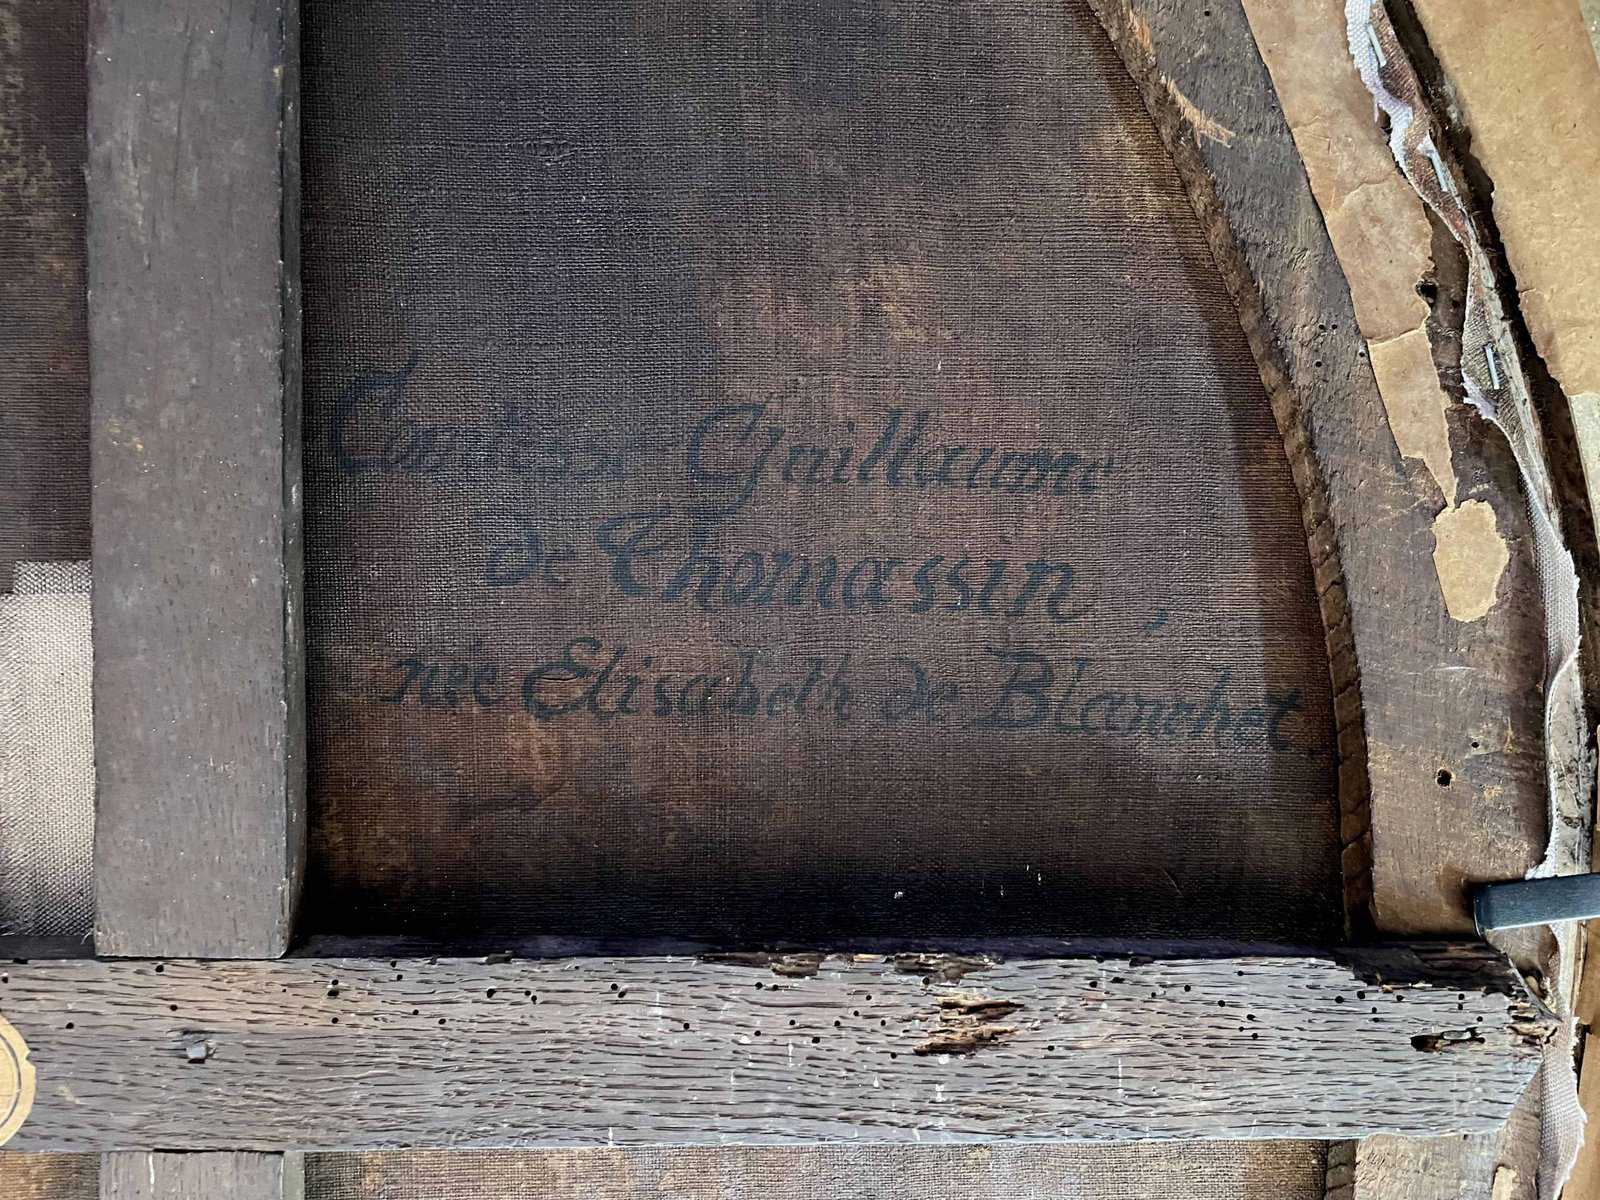 Comtesse Guillaume
de Thomassin,
née Elisabeth de Blanchet